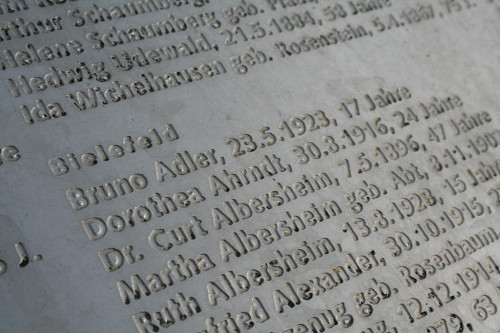 Arthur Schaumberg geb.
Helene Schaumberg geb.
Hedwig Udewald, 21.5.1884, 58 Jahre
Ida Wichelhausen geb. Rosenstein, 5.4.1867, 75 J.
Bielefeld
Bruno Adler, 23.5.1923, 17 Jahre
Dorothea Ahrndt, 30.3.1916, 24 Jahre
Dr. Curt Albersheim, 7.5.1896, 47 Jahre
Martha Albersheim geb. Abt,
Ruth Albersheim, 13.8.1928, 15 Jahre
fried Alexander, 30.10.1915,
geb. Rosenbaum
12.12.1914